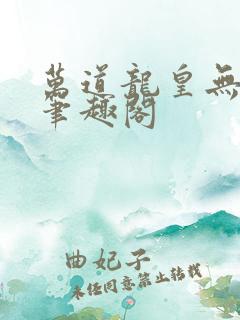 萬道龍皇無
筆趣閣
曲妃子
未經同意禁止轉載